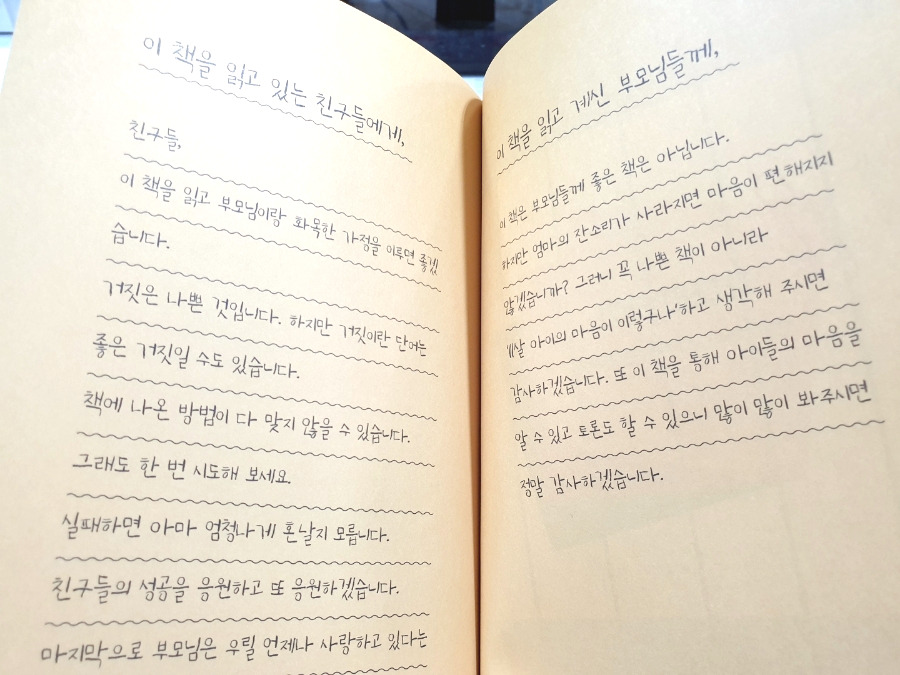 이 책을 읽고 있는 친구들에게,
친구들,
이 책을 읽고 부모님이랑 화목한 가정을 이루면 좋겠
습니다.
거짓은 나쁜 것입니다. 하지만 거짓이란 단어는
좋은 거짓일 수도 있습니다.
책에 나온 방법이 다 맞지 않을 수 있습니다.
그래도 한 번 시도해 보세요.
실패하면 아마 엄청나게 혼날지 모릅니다.
친구들의 성공을 응원하고 또 응원하겠습니다.
마지막으로 부모님은 우릴 언제나 사랑하고 있다는
이 책을 읽고 계신 부모님들께,
이 책은 부모님들께 좋은 책은 아닙니다.
하지만 엄마의 잔소리가 사라지면 마음이 편해지지
않겠습니까? 그러니 꼭 나쁜 책이 아니라
살 아이의 마음이 이렇구나'하고 생각해 주시면
감사하겠습니다. 또 이 책을 통해 아이들의 마음을
알 수 있고 토론도 할 수 있으니 많이 많이 봐주시면
정말 감사하겠습니다.